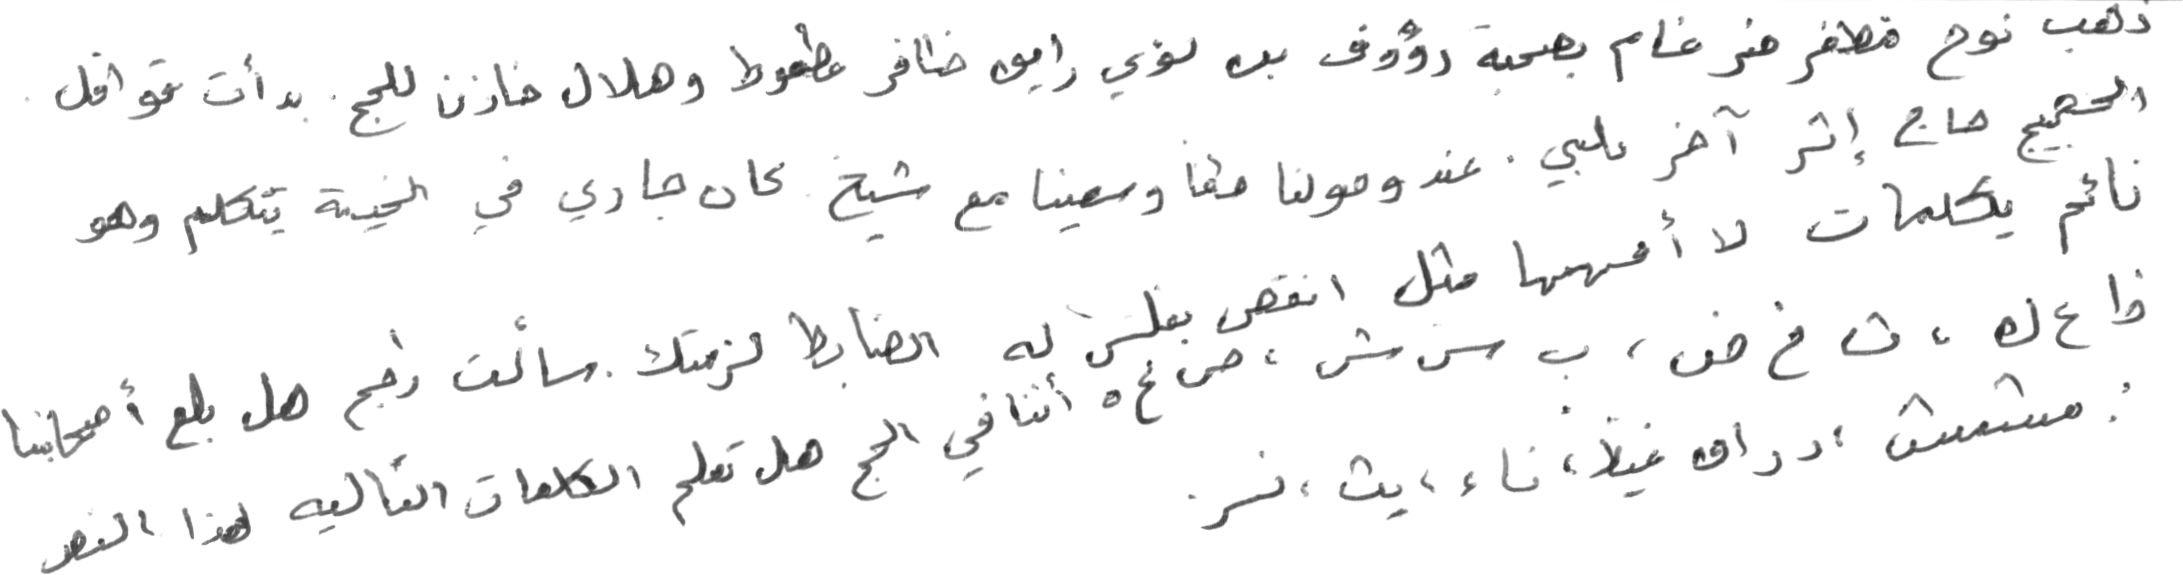 ذهب نوح مظفر ضرغام بصحبة رؤوف بن لؤي رايق ظافر عطعوط وهلال خازن للحج. بدأت قوافل
الحجيج حاج إثر آخر يلبي. عند وصولنا طفنا وسعينا مع شيخ. كان جاري في الخيمة يتكلم وهو
نائم بكلمات لا أفهمها مثل انقض بغلس له الضابط لزمتك. سألت راجح هل بلغ أصحابنا
ظ ع ك ، ث خ ض ، ب س ش ، ص غ ه أننا في الحج هل تعلم الكلمات التاليه لهذا النص
: مشمش ، دراق غيظ ، ناء ، يث ، نسر.